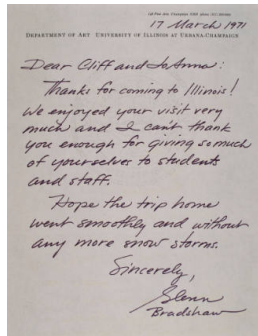 17 March 1971
DEPARTMENT OF ART UNIVERSITY OF ILLINOIS AT URBANA-CHAMPAIGN
Dear Cliff and JoAnne:
Thanks for coming to Illinois!
We enjoyed your visit very
much and I can't thank
you enough for giving so much
of yourselves to students
and staff.
Hope the trip home
went smoothly and without
any more snow storms.
Sincerely,
Glenn
Bradshaw